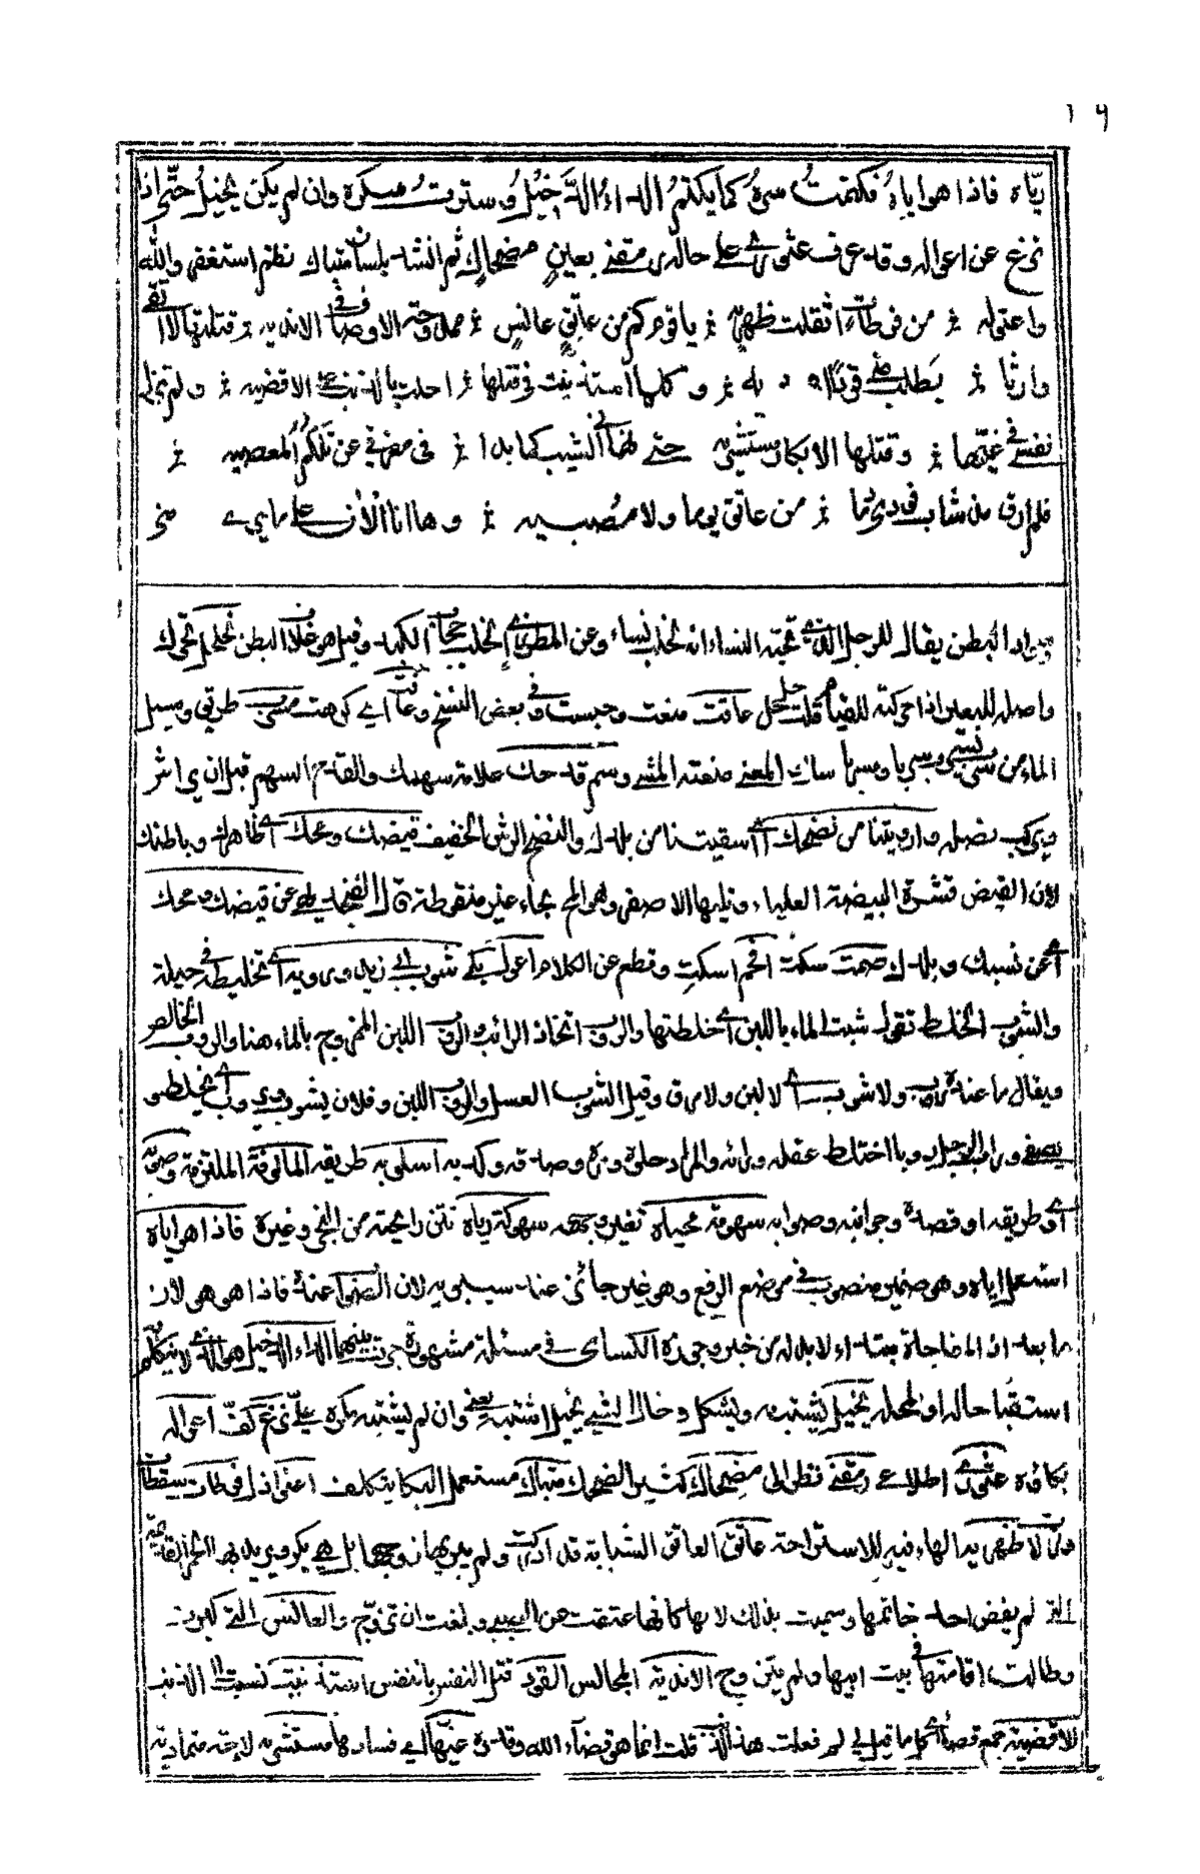 رياه فاذا هو اياه فكتمت سره كما يكتم الداء الدخيل وسترت مكره وان لم يكن يخيل حتى اذا
نزع عن اعواله وقد عرف عثوري على حاله رمقني بعين مضحاك ثم انشد بلسان متباك نظم استغفر الله
واعنو له من فرطات اثقلت ظهريه يا قوم كم من عاتق عانس ممدوحة الاوصاف في الاندية قتلتها لا اتقي
وارثا يطلب مني قودا او ديه وكلما استذنبت في قتلها احلت بالذنب على الاقضيه ولم تزل
نفسي في غيها وقتلها الابكار مستشريه حتى نهاني الشيب لما بدا في مفرقي عن تلكم المعصيه
فلم ارق مذ شاب فودي دما من عاتق يوما ولا مصبيه وها انا الآن على ما يرى
البطن يقال للرجل الذي تحبه النساء انه لخلب نساء وعن المطرزي الخلب حجاب الكبد وقيل هو غلاف البطن تحلحل تحرك
واصله للبعير اذا حركته للقيام قلت حل حل عاقت منعت وحبست وفي بعض النسخ وعافت اي كرهت مسربي طريقي ومسيل
الماء من سرب يسرب سربا ومسربا سارت المعنى منعته المشي وسم قدحك علامة سهمك والقدح السهم قبل ان يراش
ويركب نصله وارويتنا من نضحك اي اسقيتنا من بللك والنضح الرش الخفيف قيضك ومحك اي ظاهرك وباطنك
لان القيض قشرة البيضة العلياء ويليها الاصفر وهو المح بحاء غير منقوطة فحصك عن قيضك ومحك
اي عن نسبك وبلدك صمت سكت افحم اسكت وقطع عن الكلام اعول بكى شوب ابي زيد ورويه اي تخليطه في حيلة
والشوب الخلط تقول شبت الماء باللبن اي خلطتها والروب اتخاذ الرائب والروب اللبن الممزوج بالماء هنا والروب الخالص
ويقال ما عنده روب ولا شوب اي لا لبن ولا مرق وقيل الشوب العسل والروب اللبن وفلان يشوب ويروب اي يخلط و
يصفي وراب الرجل روبا اختلط عقله ورائه والمراد حلوه ومره وصدقه وكذبه اسلوبه طريقه المالوفة الملتزمة وصوبه
اي وطريقه او قصده وجوانبه وصوابه سهومة محياه تغير وجهه سهوكة رياه نتن رائحته من البخر وغيره فاذا هو اياه
استعمل اياه وهو ضمير منصوب في موضع الرفع وهو غير جائز عند سيبويه لان الصواب عنده فاذا هو هو لان
ما بعد اذا المفاجاة مبتداء لا بد له من خبر وجوزه الكسائي في مسئلة مشهورة جرت بينهما الداء الدخيل هو الذي لا يتكلم
استقباحا له او لمحله يخيل يشتبه ويشكل وخال الشيء يخيل اشتبه يعني وان لم يشتبه مكره علي نزع كف اعواله
بكاؤه عثوري اطلاعي رمقني نظر الي مضحاك كثير الضحك متباك مستعمل البكا بتكلف اعنو اذل فرطات سقطات
وزلات ظهريه الهاء فيه للاستراحة عاتق العاتق الشابة قد ادركت ولم يبن بها زوجها بل هي بكر ويريد بها الخمر القديمة
التي لم يفض احد خاتمها وسميت بذلك لانها كانها عتقت عن الصبي وبلغت ان تزوج والعانس التي كبرت
وطالت اقامتها في بيت ابيها ولم يتزوج الاندية المجالس القود قتل النفس بالنفس استذنبت نسبت الى الذنب
الاقضية جمع قضاء اي كلما قيل لي لم فعلت هذا الذنب قلت انما هو قضاء الله وقدره غيها اي فسادها مستشرية لاجة متمادية